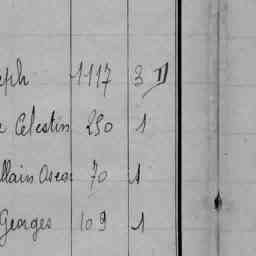 eph 1117 3 D
e Celestin 250 1
llain Oscar 70 1
Georges 109 1